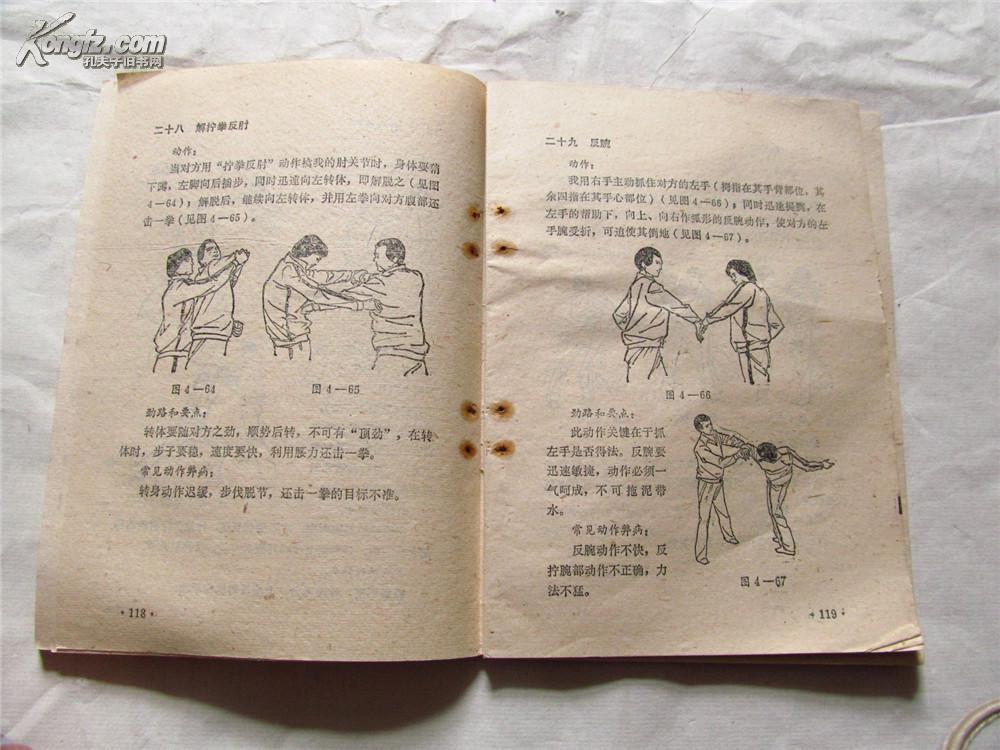 Kongfz.com
孔夫子旧书网
二十八 解拧拳反肘
动作：
当对方用“拧拳反肘”动作搞我的肘关节时，身体要稍
下蹲，左脚向后插步，同时迅速向左转体，即解脱之（见图
4—64）；解脱后，继续向左转体，并用左拳向对方腹部还
击一拳（见图4—65）。
图4—64
图4—65
劲路和要点：
转体要随对方之劲，顺势后转，不可有“顶劲”，在转
体时，步子要稳，速度要快，利用腰力还击一拳。
常见动作弊病：
转身动作迟缓，步伐脱节，还击一拳的目标不准。
·118·
二十九 反腕
动作：
我用右手主动抓住对方的左手（拇指在其手背部位，其
余四指在其手心部位）（见图4—66）；同时迅速提腕，在
左手的帮助下，向上、向右作弧形的反腕动作，使对方的左
手腕受折，可迫使其倒地（见图4—67）。
图4—66
劲路和要点：
此动作关键在于抓
左手是否得法。反腕要
迅速敏捷，动作必须一
气呵成，不可拖泥带
水。
常见动作弊病：
反腕动作不快，反
拧腕部动作不正确，力
法不猛。
图4—67
·119·